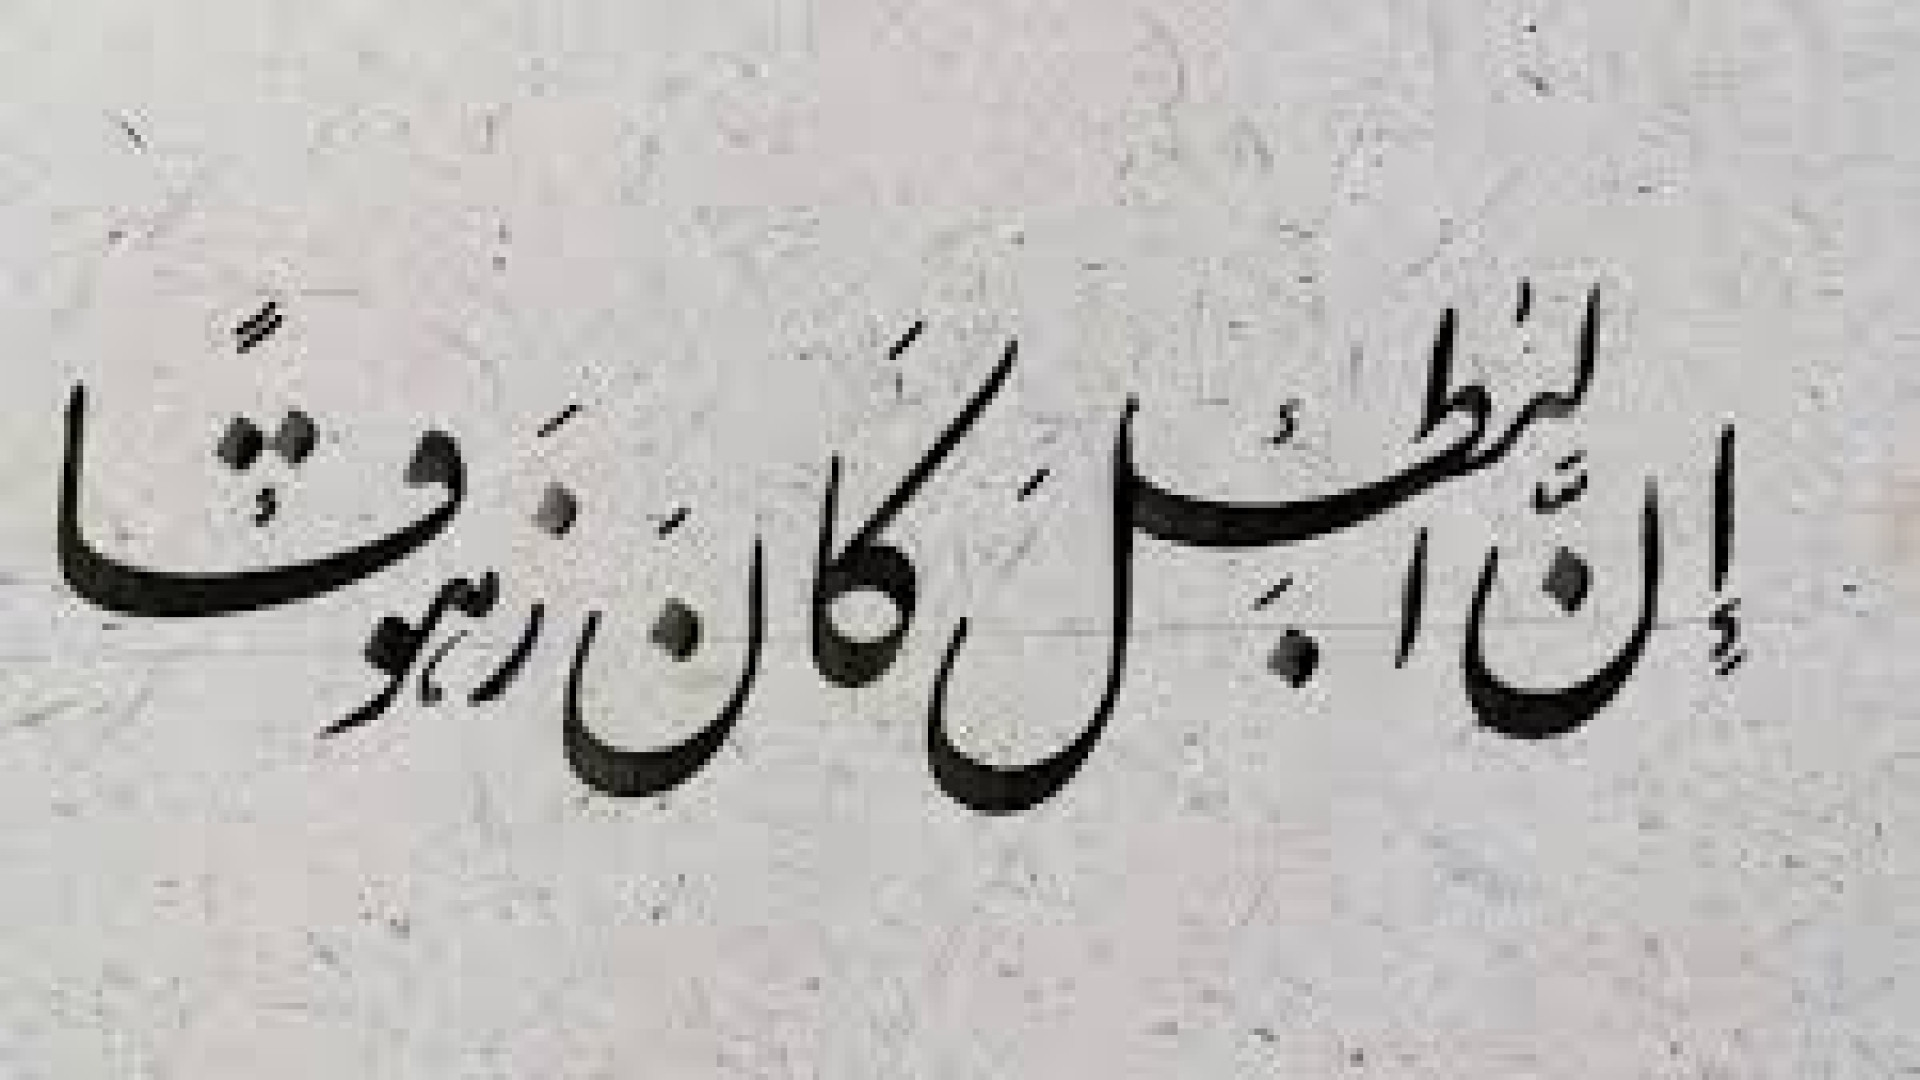 إِنَّ الْبَٰطِلَ كَانَ زَهُوقًا